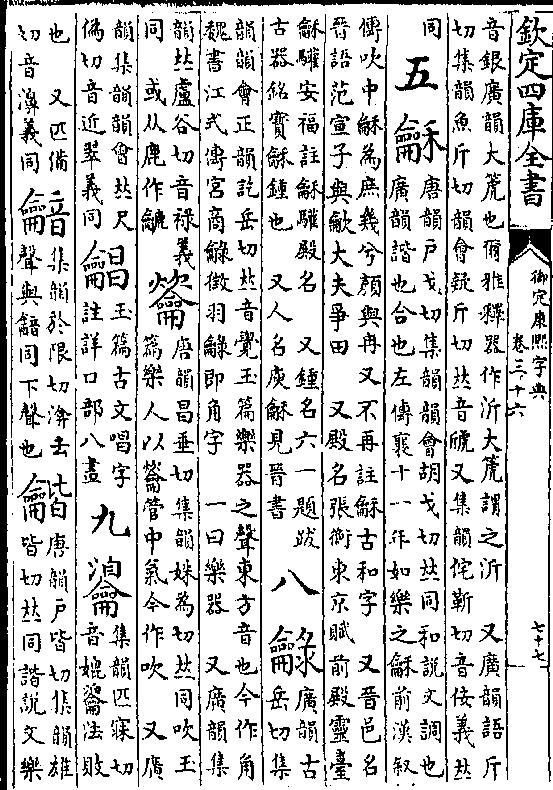 欽定四庫全書
御定康熙字典
卷三十六
七十七
音銀廣韻大箎也爾雅釋器作沂大箎謂之沂 又廣韻語斤
切集韻魚斤切韻會疑斤切𠀤音虒又集韻侘靳切音㑊義𠀤
同
五 龢
唐韻戸戈切集韻韻會胡戈切𠀤同和說文調也
廣韻諧也合也左傳襄十一年如樂之龢前漢叙
傳吹中龢為庶幾兮顔與冉又不再註龢古和字 又晉邑名
晉語范宣子與龢大夫爭田 又殿名張衡東京賦前殿靈臺
龢驩安福註龢驩殿名 又鍾名六一題跋
古器銘寳龢鍾也 又人名庾龢見晉書
八 龣
廣韻古
岳切集
韻韻會正韻訖岳切𠀤音覺玉篇樂器之聲東方音也今作角
魏書江式傳宮商龣徵羽龣即角字 一曰樂器 又廣韻集
韻𠀤盧谷切音祿義
同 或从鹿作
龡
唐韻昌垂切集韻姝為切𠀤同吹玉
篇樂人以龡管中氣今作吹 又廣
韻集韻韻會𠀤尺
僞切音近翠義同
玉篇古文唱字
註詳口部八畫
九
集韻匹寐切
音媲 法敗
也 又匹備
切音濞義同
集韻於限切 去
聲與 同下聲也
龤
唐韻戸皆切集韻雄
皆切𠀤同諧說文樂